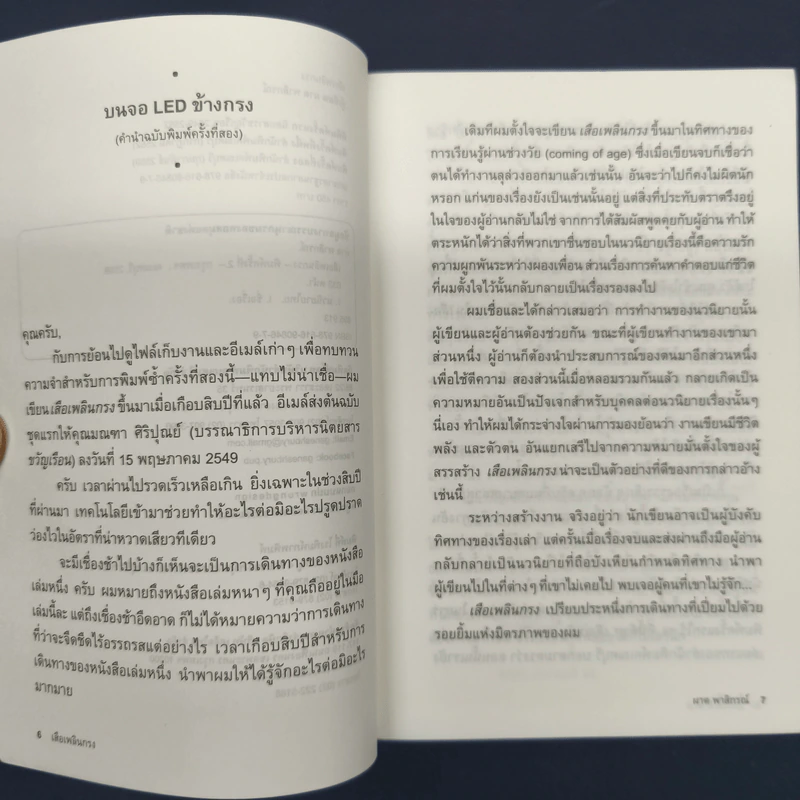 บนจอ LED ข้างกรง
(คำนำฉบับพิมพ์ครั้งที่สอง)
คุณครับ,
กับการย้อนไปดูไฟล์เก็บงานและอีเมล์เก่าๆ เพื่อทบทวน
ความจำสำหรับการพิมพ์ซ้ำครั้งที่สองนี้—แทบไม่น่าเชื่อ—ผม
เขียน เสือเพลินกรง ขึ้นมาเมื่อเกือบสิบปีที่แล้ว อีเมล์ส่งต้นฉบับ
ชุดแรกให้คุณมณฑา ศิริปุณย์ (บรรณาธิการบริหารนิตยสาร
ขวัญเรือน) ลงวันที่ 15 พฤษภาคม 2549
ครับ เวลาผ่านไปรวดเร็วเหลือเกิน ยิ่งเฉพาะในช่วงสิบปี
ที่ผ่านมา เทคโนโลยีเข้ามาช่วยทำให้อะไรต่อมิอะไรปรูดปราด
ว่องไวในอัตราที่น่าหวาดเสียวทีเดียว
จะมีเชื่องช้าไปบ้างก็เห็นจะเป็นการเดินทางของหนังสือ
เล่มหนึ่ง ครับ ผมหมายถึงหนังสือเล่มหนาๆ ที่คุณถืออยู่ในมือ
เล่มนี้ละ แต่ถึงเชื่องช้าอืดอาด ก็ไม่ได้หมายความว่าการเดินทาง
ที่ว่าจะจืดชืดไร้อรรถรสแต่อย่างไร เวลาเกือบสิบปีสำหรับการ
เดินทางของหนังสือเล่มหนึ่ง นำพาผมให้ได้รู้จักอะไรต่อมิอะไร
มากมาย
6 เสือเพลินกรง
เดิมทีผมตั้งใจจะเขียน เสือเพลินกรง ขึ้นมาในทิศทางของ
การเรียนรู้ผ่านช่วงวัย (coming of age) ซึ่งเมื่อเขียนจบก็เชื่อว่า
ตนได้ทำงานลุล่วงออกมาแล้วเช่นนั้น อันจะว่าไปก็คงไม่ผิดนัก
หรอก แก่นของเรื่องยังเป็นเช่นนั้นอยู่ แต่สิ่งที่ประทับตราตรึงอยู่
ในใจของผู้อ่านกลับไม่ใช่ จากการได้สัมผัสพูดคุยกับผู้อ่าน ทำให้
ตระหนักได้ว่าสิ่งที่พวกเขาชื่นชอบในนวนิยายเรื่องนี้คือความรัก
ความผูกพันระหว่างผองเพื่อน ส่วนเรื่องการค้นหาคำตอบแก่ชีวิต
ที่ผมตั้งใจไว้นั้นกลับกลายเป็นเรื่องรองลงไป
ผมเชื่อและได้กล่าวเสมอว่า การทำงานของนวนิยายนั้น
ผู้เขียนและผู้อ่านต้องช่วยกัน ขณะที่ผู้เขียนทำงานของเขามา
ส่วนหนึ่ง ผู้อ่านก็ต้องนำประสบการณ์ของตนมาอีกส่วนหนึ่ง
เพื่อใช้ตีความ สองส่วนนี้เมื่อหลอมรวมกันแล้ว กลายเกิดเป็น
ความหมายอันเป็นปัจเจกสำหรับบุคคลต่อนวนิยายเรื่องนั้นๆ
นี่เอง ทำให้ผมได้กระจ่างใจผ่านการมองย้อนว่า งานเขียนมีชีวิต
พลัง และตัวตน อันแยกเสรีไปจากความหมายมั่นตั้งใจของผู้
สรรสร้าง เสือเพลินกรง น่าจะเป็นตัวอย่างที่ดีของการกล่าวอ้าง
เช่นนี้
ระหว่างสร้างงาน จริงอยู่ว่า นักเขียนอาจเป็นผู้บังคับ
ทิศทางของเรื่องเล่า แต่ครั้นเมื่อเรื่องจบและส่งผ่านถึงมือผู้อ่าน
กลับกลายเป็นนวนิยายที่ถือบังเหียนกำหนดทิศทาง นำพา
ผู้เขียนไปในที่ต่างๆ ที่เขาไม่เคยไป พบเจอผู้คนที่เขาไม่รู้จัก...
เสือเพลินกรง เปรียบประหนึ่งการเดินทางที่เปี่ยมไปด้วย
รอยยิ้มแห่งมิตรภาพของผม
ผาด พาสิกรณ์ 7